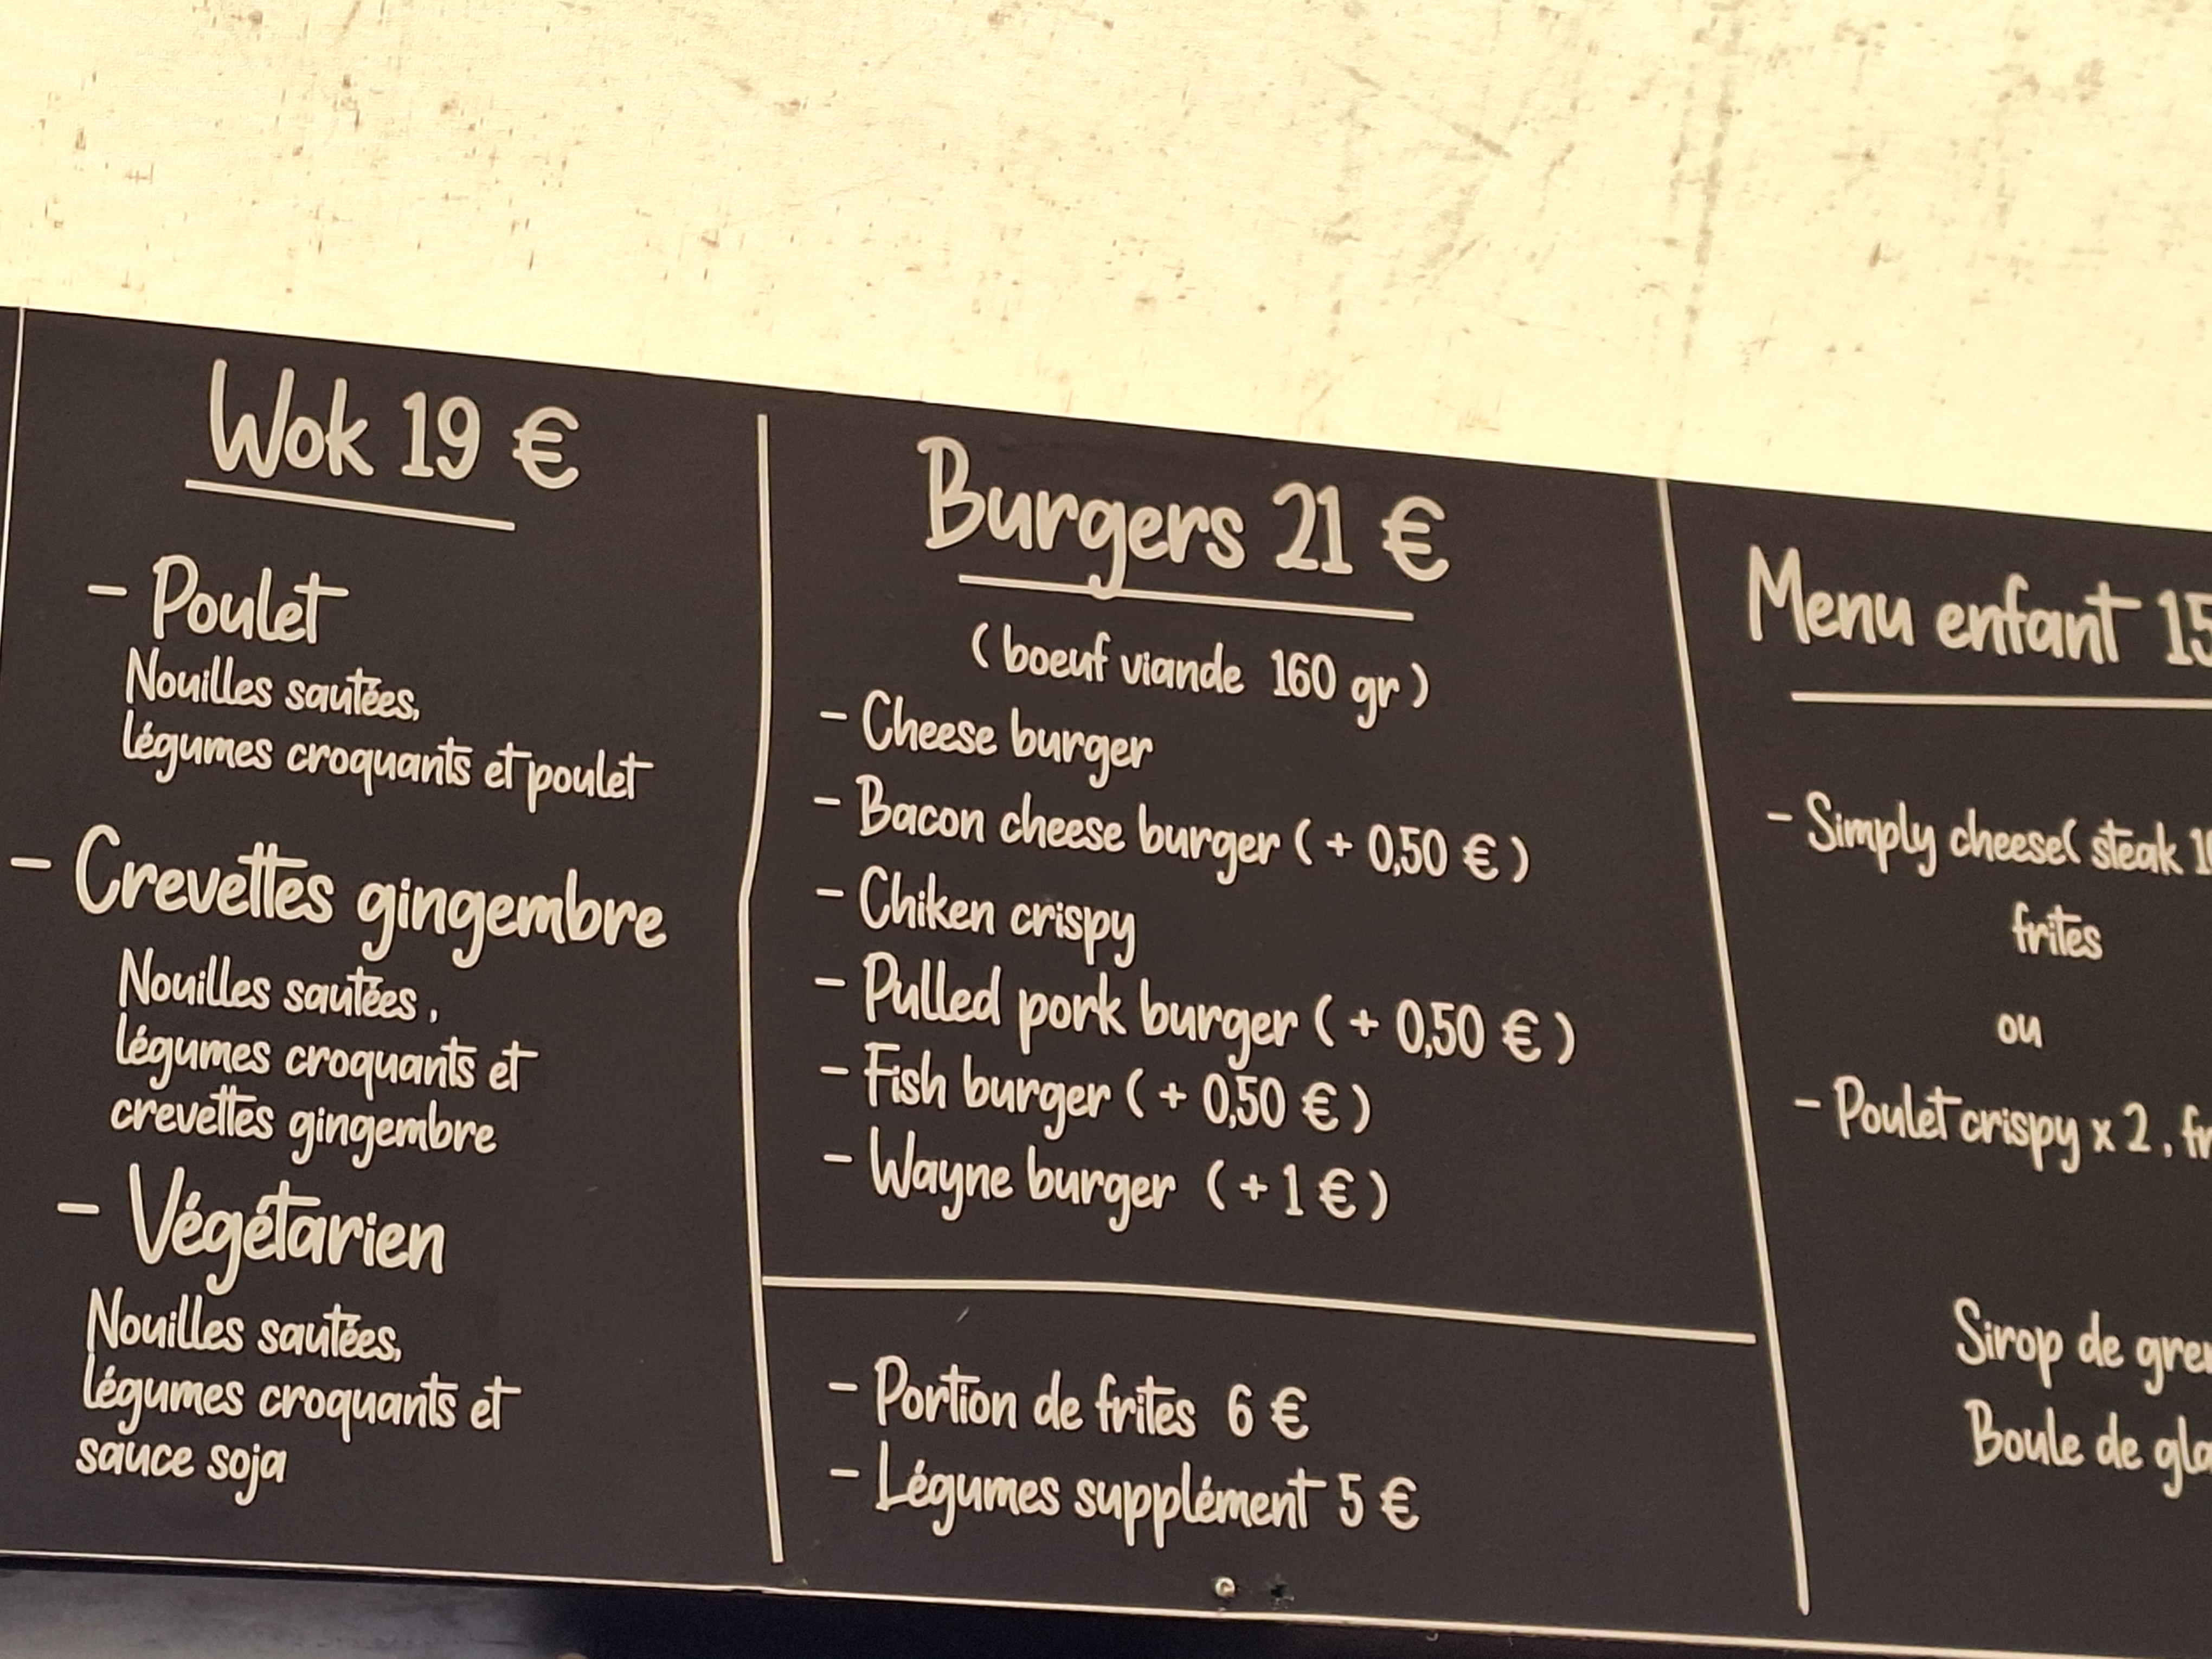 Wok 19 €
- Poulet
Nouilles sautées,
légumes croquants et poulet
- Crevettes gingembre
Nouilles sautées,
légumes croquants et
crevettes gingembre
- Végétarien
Nouilles sautées,
légumes croquants et
sauce soja
Burgers 21 €
( boeuf viande 160 gr )
- Cheese burger
- Bacon cheese burger ( + 0,50 € )
- Chiken crispy
- Pulled pork burger ( + 0,50 € )
- Fish burger ( + 0,50 € )
- Wayne burger ( + 1 € )
- Portion de frites 6 €
- Légumes supplément 5 €
Menu enfant 15
- Simply cheese( steak
frites
ou
- Poulet crispy x 2,
Sirop de
Boule de